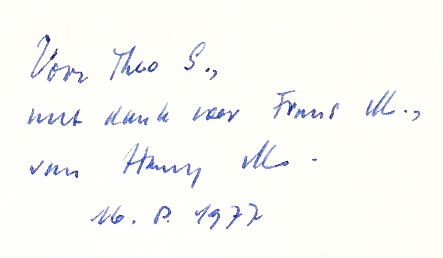 Voor Theo S.,
met dank voor Frans M.,
van Harry M.
16. 8. 1977